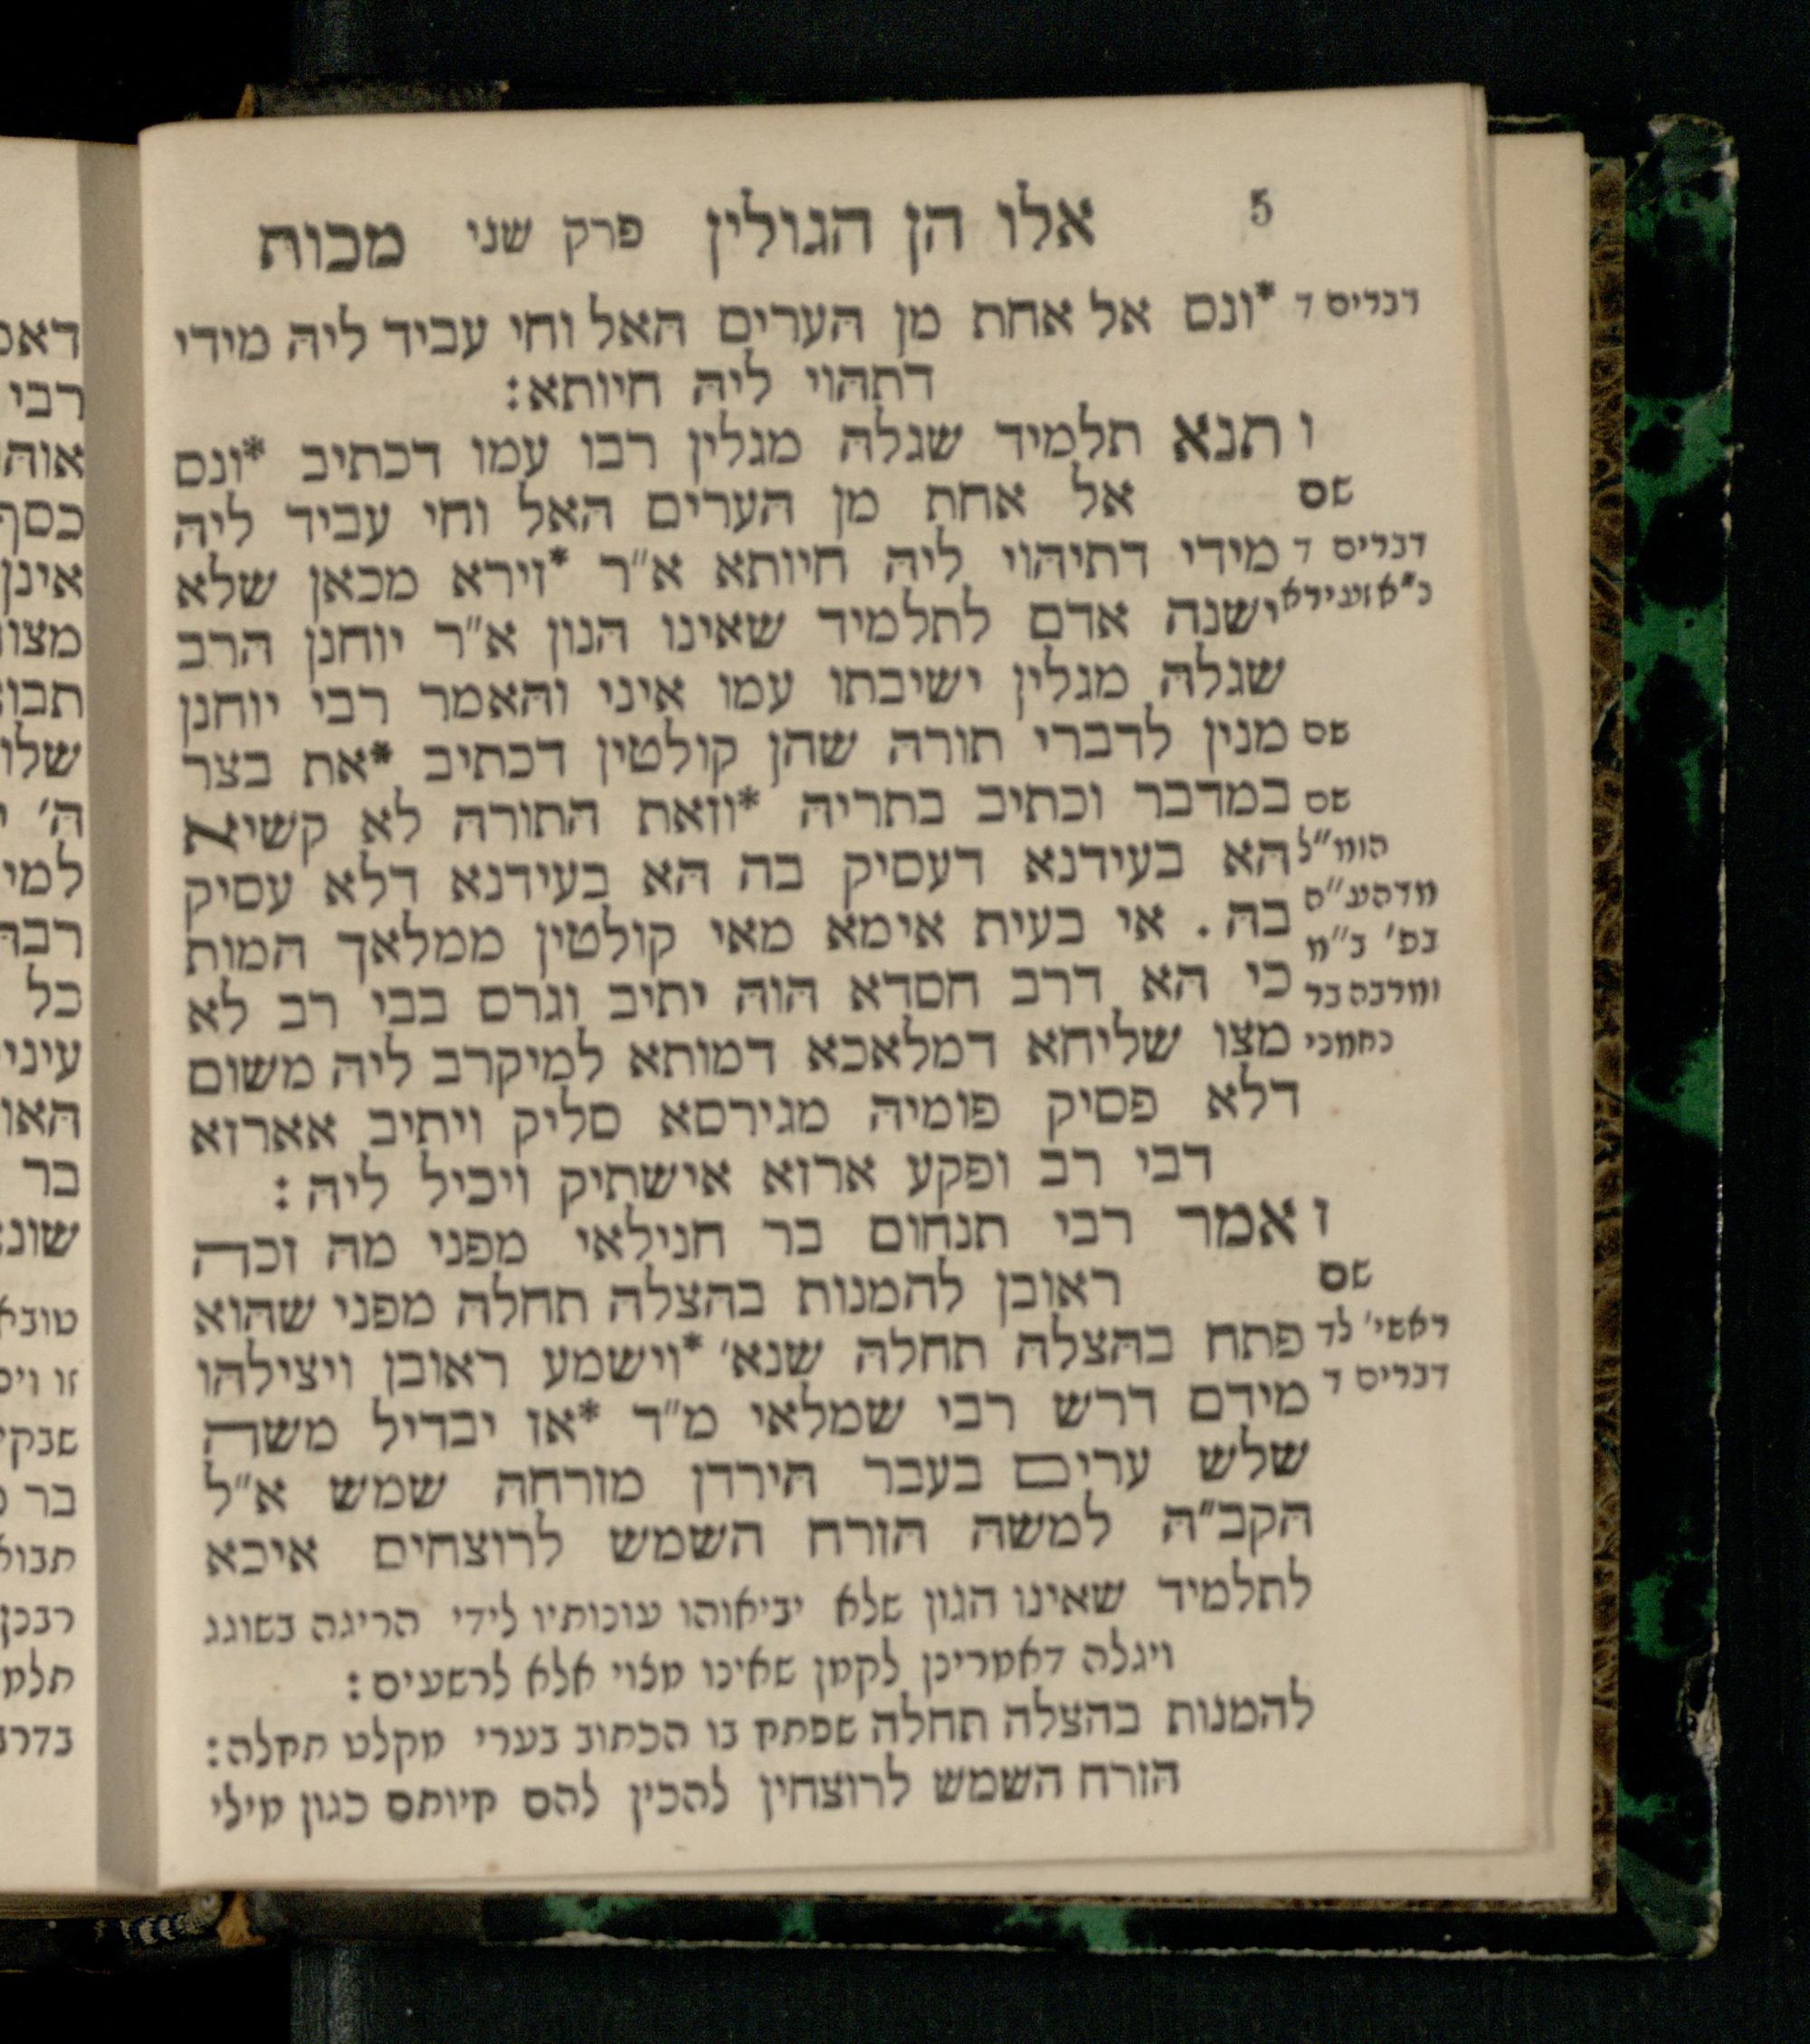 5 אלו הן הגולין פרק שני מכות
דברים ד *ונס אל אחת מן הערים האל וחי עביד ליה מידי
דתהוי ליה חיותא:
ו תנא תלמיד שגלה מגלין רבו עמו דכתיב *ונס
שם אל אחת מן הערים האל וחי עביד ליה
דברים ד מידי דתיהוי ליה חיותא א״ר *זירא מכאן שלא
נ״א זעירא ישנה אדם לתלמיד שאינו הגון א״ר יוחנן הרב
שגלה מגלין ישיבתו עמו איני והאמר רבי יוחנן
שם מנין לדברי תורה שהן קולטין דכתיב *את בצר
שם במדבר וכתיב בתריה *וזאת התורה לא קשיא
הומ״ל הא בעידנא דעסיק בה הא בעידנא דלא עסיק
מדהע״ה
בה. אי בעית אימא מאי קולטין ממלאך המות
בפ׳ ב״מ
ומרבה בר כי הא דרב חסדא הוה יתיב וגרס בבי רב לא
נחמני מצו שליחא דמלאכא דמותא למיקרב ליה משום
דלא פסיק פומיה מגירסא סליק ויתיב אארזא
דבי רב ופקע ארזא אישתיק ויכיל ליה:
ז אמר רבי תנחום בר חנילאי מפני מה זכה
שם ראובן להמנות בהצלה תחלה מפני שהוא
ראשי׳ לד פתח בהצלה תחלה שנא׳ *וישמע ראובן ויצילהו
דברים ד מידם דרש רבי שמלאי מ״ד *אז יבדיל משה
שלש ערים בעבר הירדן מזרחה שמש א״ל
הקב״ה למשה הזרח השמש לרוצחים איכא
לתלמיד שאינו הגון שלא יביאוהו עונותיו לידי הריגה בשוגג
ויגלה דאמרינן לקמן שאינו מצוי אלא לרשעים:
להמנות בהצלה תחלה שפתח בו הכתוב בערי מקלט תחלה:
הזרח השמש לרוצחין להכין להם חיותם כגון מילי
דאמ
רבי
אוהב
כסף
אינן
מצוו
תבוא
שלו
ה׳
למי
רבה
כל
עיני
האו
בר
שונא
טובא
זו
שבקי
בר
תבוא
רבנן
תלמ
בדר